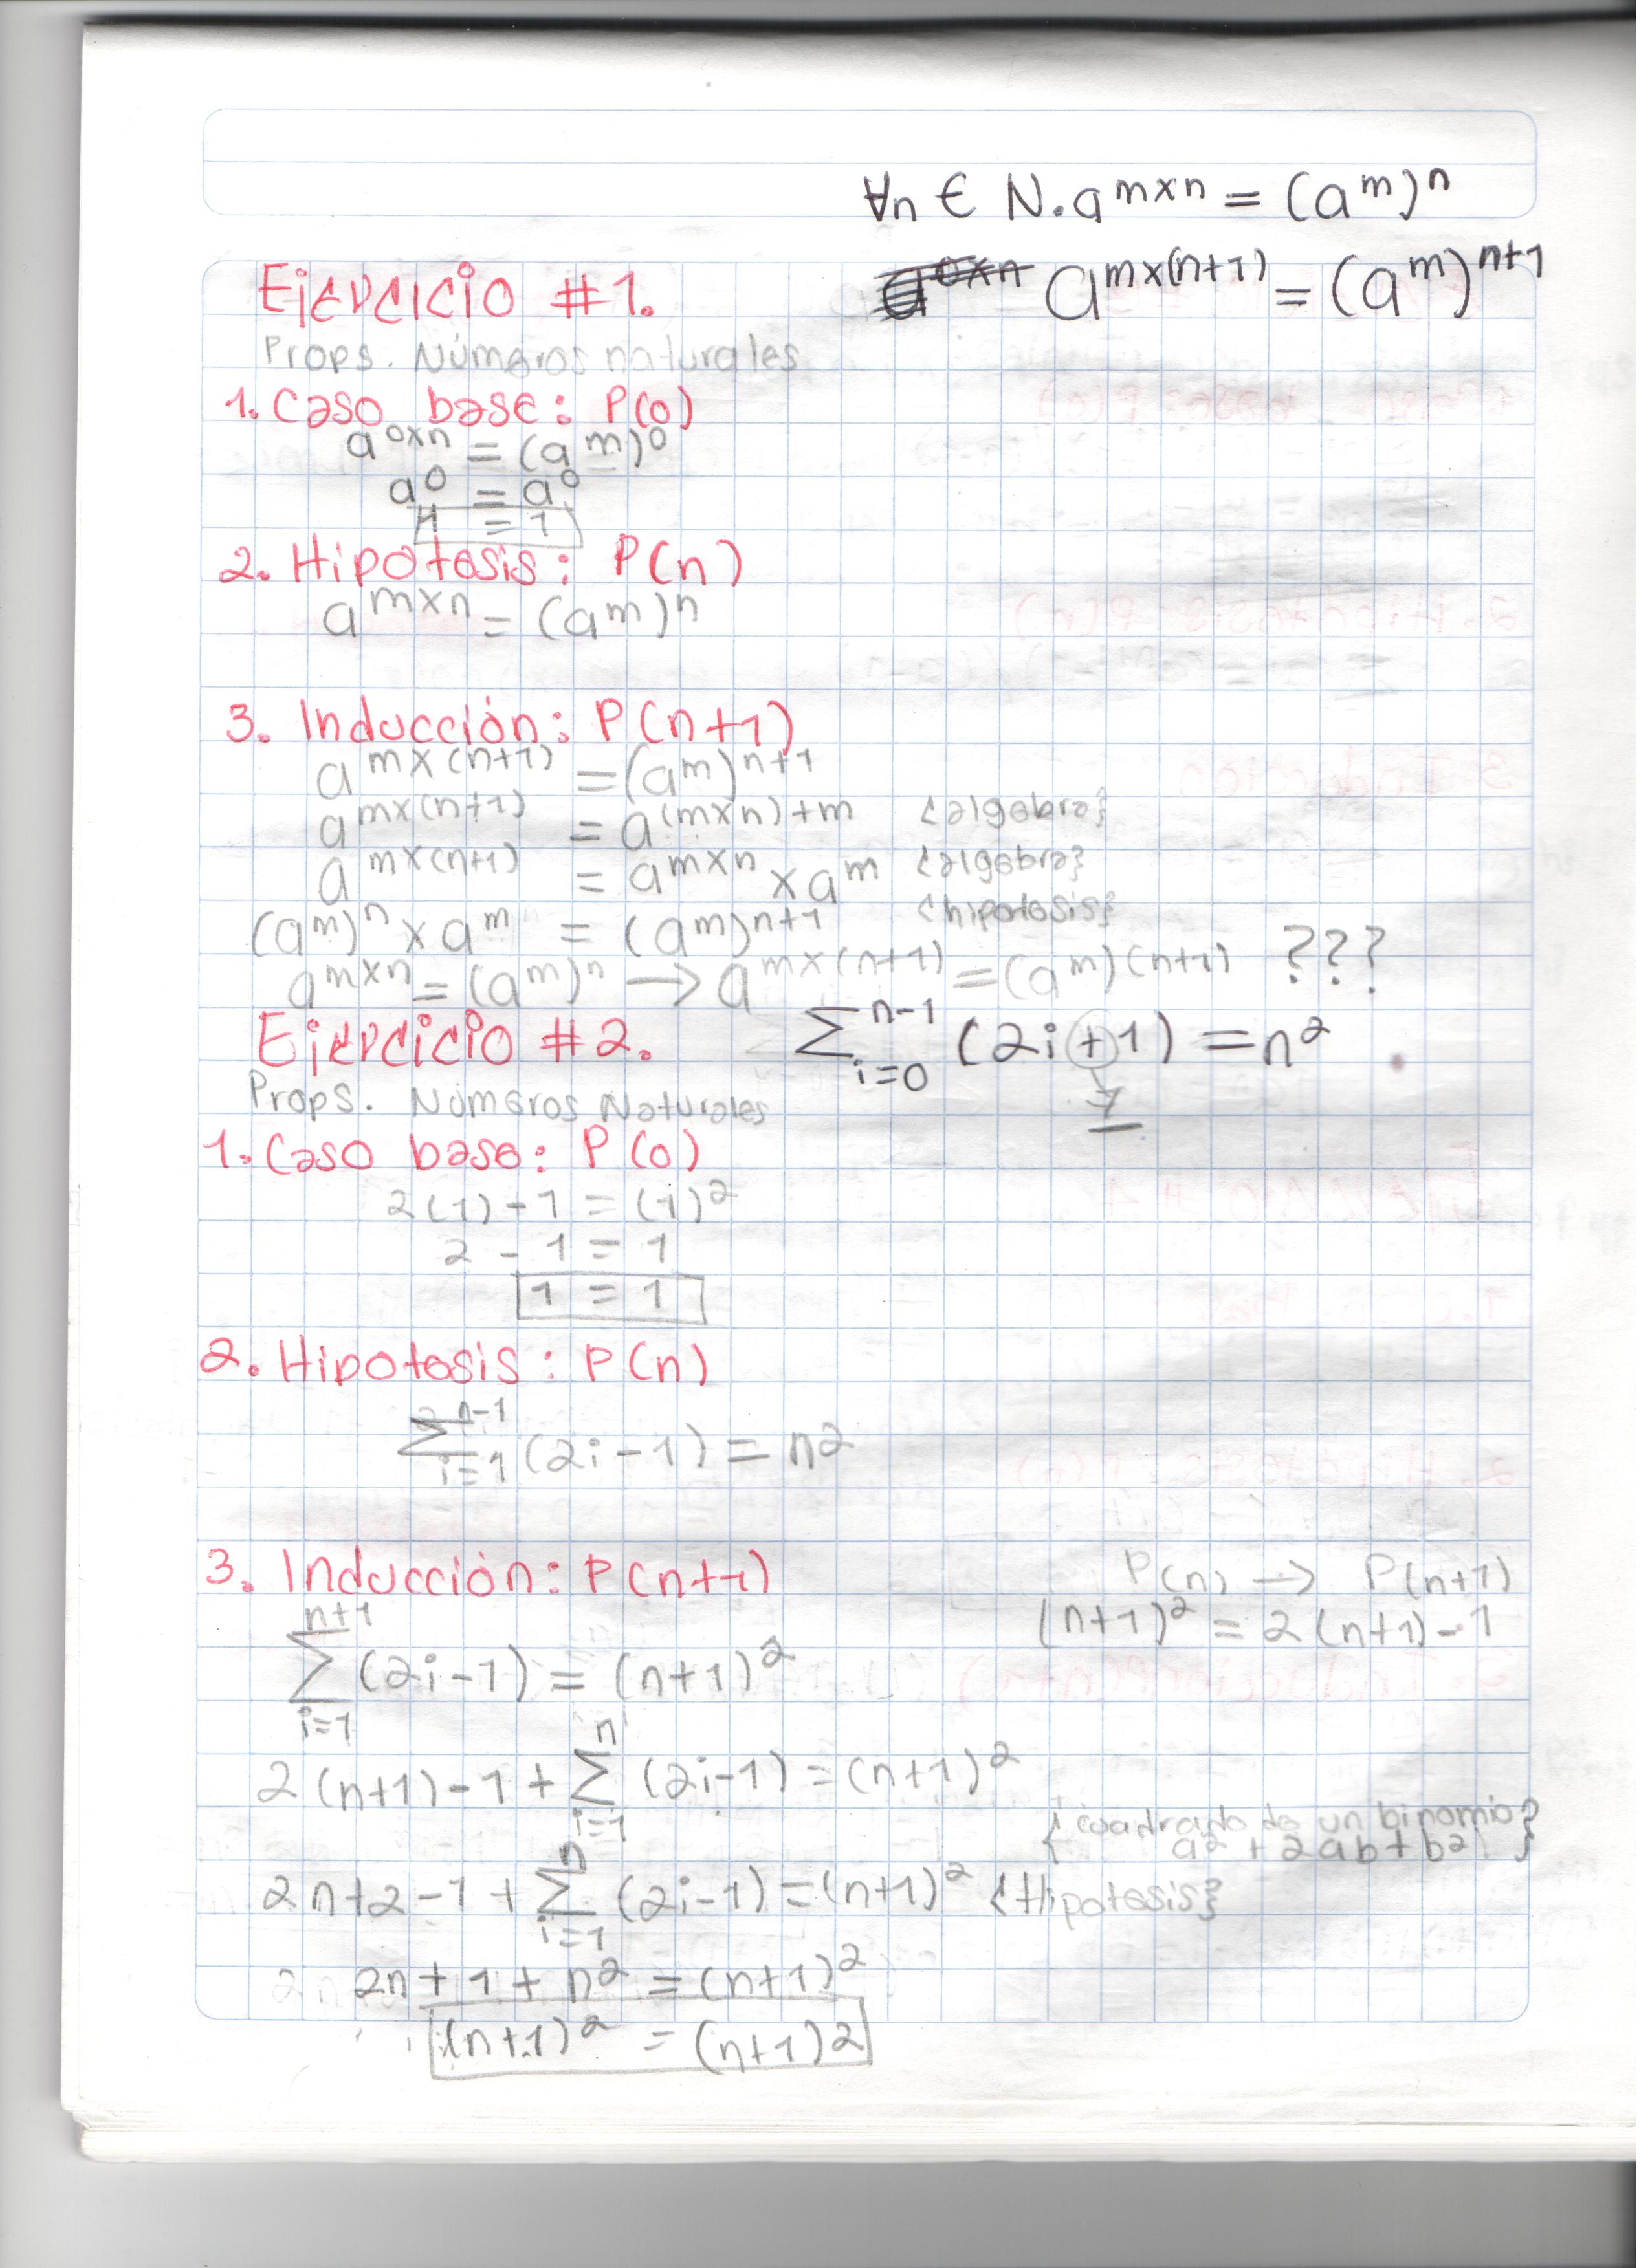 ∀n ∈ N. a^{m×n} = (a^m)^n
a^{m×(n+1)} = (a^m)^{n+1}
Ejercicio #1.
Props. Números naturales
1. Caso base: P(0)
a^{0×n} = (a^m)^0
a^0 = a^0
1 = 1
2. Hipotesis: P(n)
a^{m×n} = (a^m)^n
3. Inducción: P(n+1)
a^{m×(n+1)} = (a^m)^{n+1}
a^{m×(n+1)} = a^{(m×n)+m} {algebra}
a^{m×(n+1)} = a^{m×n} × a^m {algebra}
(a^m)^n × a^m = (a^m)^{n+1} {hipotesis}
a^{m×n} = (a^m)^n → a^{m×(n+1)} = (a^m)^{(n+1)} ???
Ejercicio #2. ∑_{i=0}^{n-1} (2i+1) = n^2
Props. Números Naturales
1. Caso base: P(0)
2(1) - 1 = (1)^2
2 - 1 = 1
1 = 1
2. Hipotesis: P(n)
∑_{i=1}^{n-1} (2i-1) = n^2
3. Inducción: P(n+1)
P(n) → P(n+1)
(n+1)^2 = 2(n+1)-1
∑_{i=1}^{n+1} (2i-1) = (n+1)^2
2(n+1)-1 + ∑_{i=1}^{n} (2i-1) = (n+1)^2
{cuadrado de un binomio
a^2 + 2ab + b^2}
2n+2-1 + ∑_{i=1}^{n} (2i-1) = (n+1)^2 {Hipotesis}
2n + 1 + n^2 = (n+1)^2
(n+1)^2 = (n+1)2